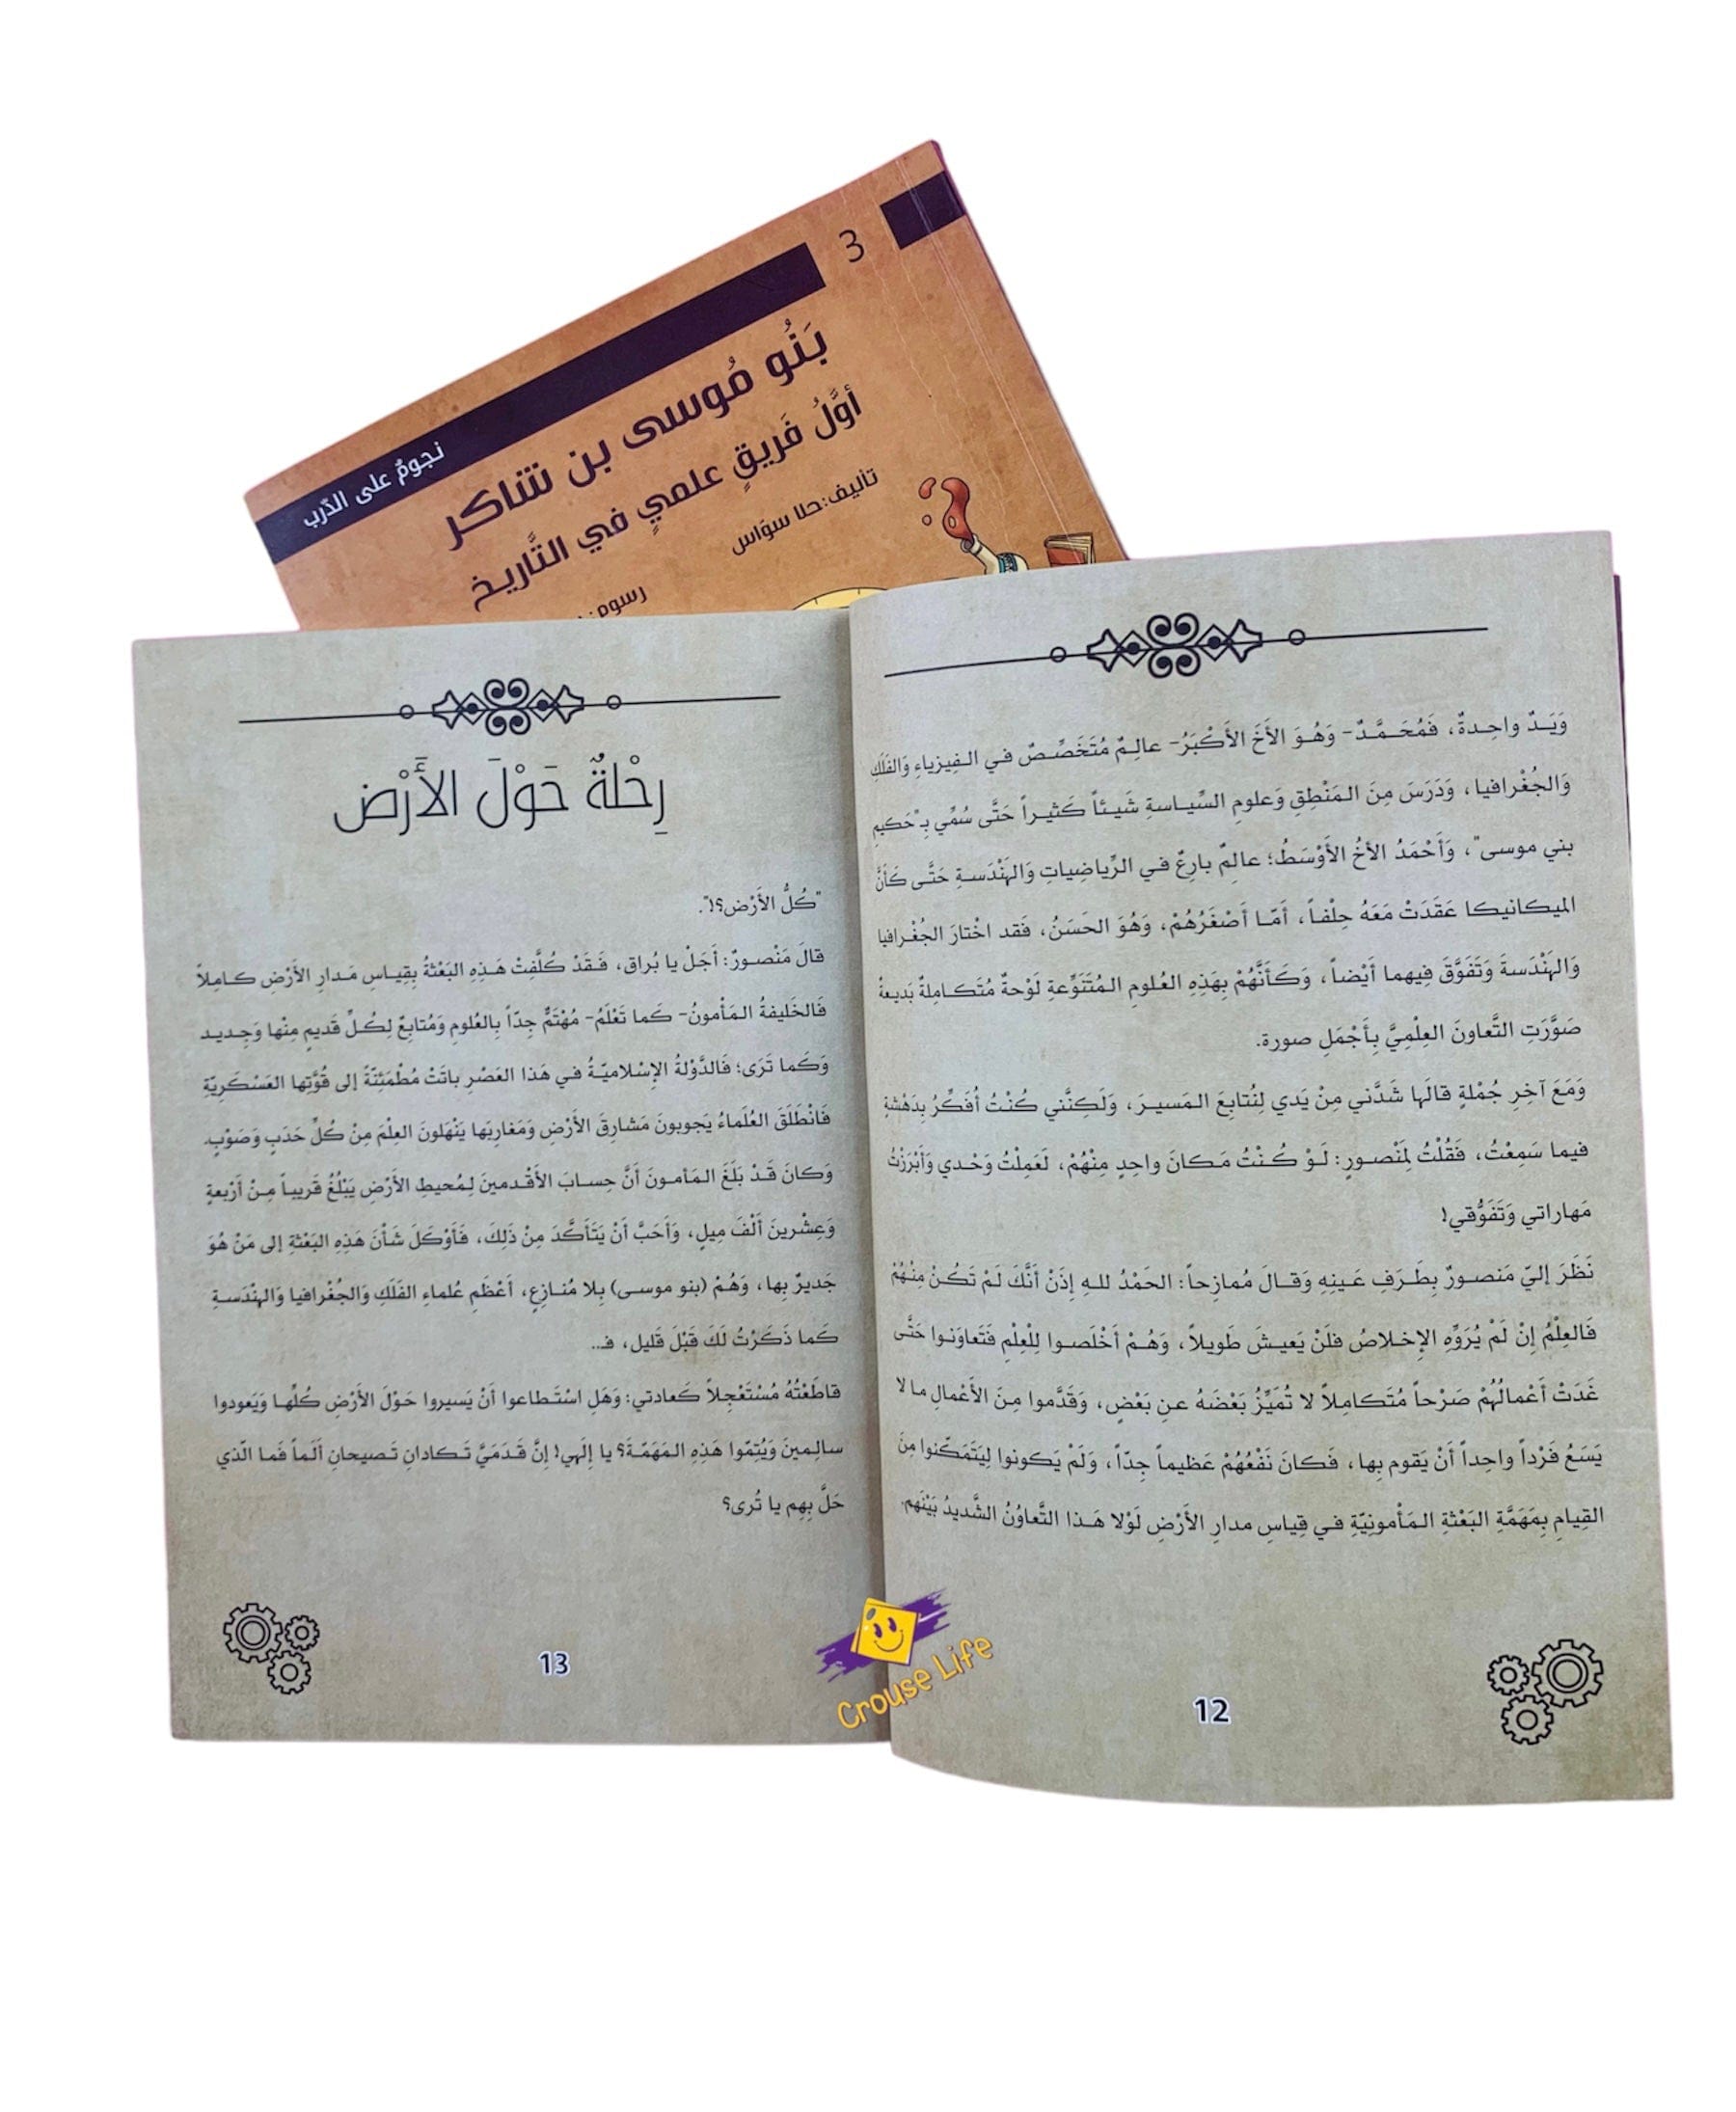 3
نجومٌ على الدّرب
بَنُو مُوسى بن شاكر
أوَّلُ فَريقٍ علميٍ في التَّاريخ
تأليف: حلا سوّاس
رسوم:
وَيَـدٌ واحِـدةٌ، فَمُحَـمَّـدٌ- وَهُـوَ الأَخَ الأَكْبَرُ- عالِـمٌ مُتَخَصِّـصٌ في الـفِيزياءِ وَالفَلَكِ
وَالجُغْرافيا، وَدَرَسَ مِنَ المَنْطِقِ وَعلومِ السِّيـاسةِ شَيـئاً كَثيـراً حَتَّى سُمِّي بِـ"حَكيمِ
بني موسى"، وَأَحْمَدُ الأخُ الأَوْسَطُ؛ عالِمٌ بارِعٌ في الرِّياضِياتِ وَالهَنْدَسـةِ حَتَّـى كَأَنَّ
الميكانيكا عَقَدَتْ مَعَهُ حِلْفاً، أَمّـا أَصْغَرُهُمْ، وَهُوَ الحَسَنُ، فَقد اخْتارَ الجُغْـرافيا
وَالهَنْدَسةَ وَتَفَوَّقَ فِيهما أَيْضاً، وَكَأَنَّهُمْ بِهَذِهِ العُلومِ المُتَنَوِّعةِ لَوْحةٌ مُتَكـامِلةٌ بَديعةٌ
صَوَّرَتِ التَّعاونَ العِلْمِيَّ بِأَجْمَلِ صورة.
وَمَعَ آخِرِ جُمْلةٍ قالَها شَدَّني مِنْ يَدي لِنُتابِعَ المَسيـرَ، وَلَكِنَّني كُنْتُ أُفَكِّرُ بِدَهْشةٍ
فيما سَمِعْتُ، فَقُلْتُ لِمَنْصـورٍ: لَـوْ كُـنْتُ مَـكانَ واحِدٍ مِنْهُمْ، لَعَمِلْتُ وَحْـدي وَأَبْرَزْتُ
مَهاراتي وَتَفَوُّقي!
نَظَرَ إليّ مَنصـورٌ بِطَـرَفِ عَـينِهِ وَقـالَ مُمازِحـاً: الحَمْدُ للهِ إِذَنْ أَنَّكَ لَمْ تَكُـنْ مِنْهُمْ
فَالعِلْمُ إِنْ لَمْ يُرَوِّهِ الإخـلاصُ فلَنْ يَعيـشَ طَويـلاً، وَهُـمْ أَخْلَصـوا لِلْعِلْمِ فَتَعاوَنـوا حَتَّى
غَدَتْ أَعْمالُهُمْ صَرْحـاً مُتَكـامِـلاً لا تُمَيِّزُ بَعْضَهُ عـنِ بَعْضٍ، وَقَدَّموا مِنَ الأَعْمالِ ما لا
يَسَعُ فَرْداً واحِـداً أَنْ يَقوم بِها، فَـكانَ نَفْعُهُمْ عَظيماً جِدّاً، وَلَمْ يَكونوا لِيَتَمَكّنوا مِنَ
القِيامِ بِمَهَمَّةِ البَعْثةِ المَأْمونِيّةِ في قِياسِ مدارِ الأَرْضِ لَوْلا هَـذا التَّعاوُنُ الشَّديدُ بَيْنَهم.
12
رِحْلةٌ حَوْلَ الأَرْض
"كُلُّ الأَرْض؟!".
قالَ مَنْصـورٌ: أَجَلْ يا بُراق، فَـقَدْ كُلَّفِتْ هَـذِهِ البَعْثةُ بِقِيـاسِ مَـدارِ الأَرْضِ كـامِـلاً
فَالخَليفةُ المَأْمونُ- كَما تَعْلَمُ- مُهْتَمٌّ جِدّاً بِالعُلومِ وَمُتابِعٌ لِكُـلِّ قَديمٍ مِنْها وَجِديـد
وَكَما تَرَى؛ فَالدَّوْلةُ الإِسْلاميّـةُ في هَذا العَصْرِ باتَتْ مُطْمَئِنّةً إلى قُوَّتِها العَسْكَرِيّةِ
فَانْطَلَقَ العُلَماءُ يَجوبونَ مَشارِقَ الأَرْضِ وَمَغارِبَها يَنْهَلونَ العِلْمَ مِنْ كُلِّ حَدَبٍ وَصَوْبٍ.
وَكانَ قَـدْ بَلَغَ المَأمـونَ أَنَّ حِسـابَ الأَقْـدمينَ لِـمُحيطِ الأَرْضِ يَبْلُغُ قَريبـاً مِـنْ أَرْبعةٍ
وَعِشْرينَ أَلْفَ مِيلٍ، وَأَحَبَّ أَنْ يَتَأَكَّدَ مِنْ ذَلِكَ، فَأَوْكَلَ شَأْنَ هَذِهِ البَعْثةِ إلى مَنْ هُوَ
جَديرٌ بِها، وَهُمْ (بنو موسـى) بِلا مُنـازِعٍ، أَعْظَمِ عُلماءِ الفَلَكِ وَالجُغْرافيا وَالهنْدَسـةِ
كَما ذَكَرْتُ لَكَ قَبْلَ قَليل، فـ..
قاطَعْتُهُ مُسْتَعْجِلاً كَعادتي: وَهَلِ اسْتَـطاعوا أَنْ يَسيروا حَوْلَ الأَرْضِ كُلِّهـا وَيَعودوا
سالِـمينَ وَيُتِمّوا هَذِهِ المَهَمّـةَ؟ يا إِلَهي! إِنَّ قَـدَمَيَّ تَـكادانِ تَـصيحانِ أَلَـماً فَما الّذي
حَلَّ بِهِم يا تُرى؟
13
Crouse Life